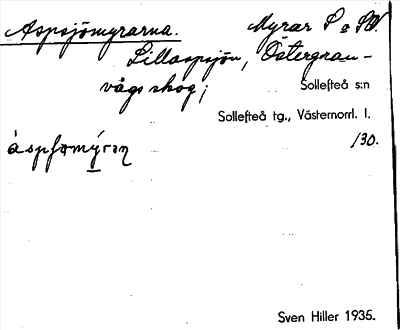 Aspsjömyrarna. Myrar S o SV.
Lillaspsjön, Östergran-
vågs skog;
Sollefteå s:n
Sollefteå tg., Västernorrl. l.
130.
Sven Hiller 1935.